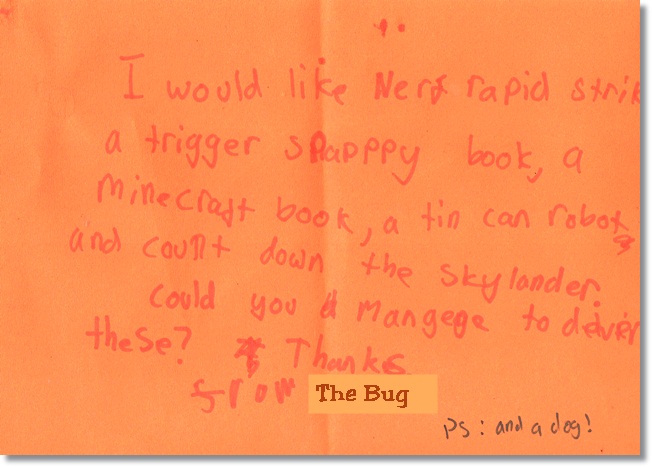 I would like Nerf rapid strik
a trigger snapppy book, a
minecraft book, a tin can robot,
and count down the skylander.
Could you a mangege to deliver
these? Thanks
from The Bug
PS: and a dog!